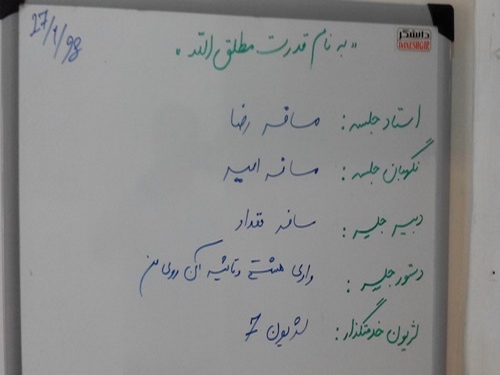 27/1/98
دانشگر
DANESHGAR
"به نام قدرت مطلق الله"
استاد جلسه: مسافر رضا
نگهبان جلسه: مسافر امیر
دبیر جلسه: مسافر مقداد
دستور جلسه: وادی هشتم و تاثیر آن روی من
لژیون خدمتگذار: لژیون 7